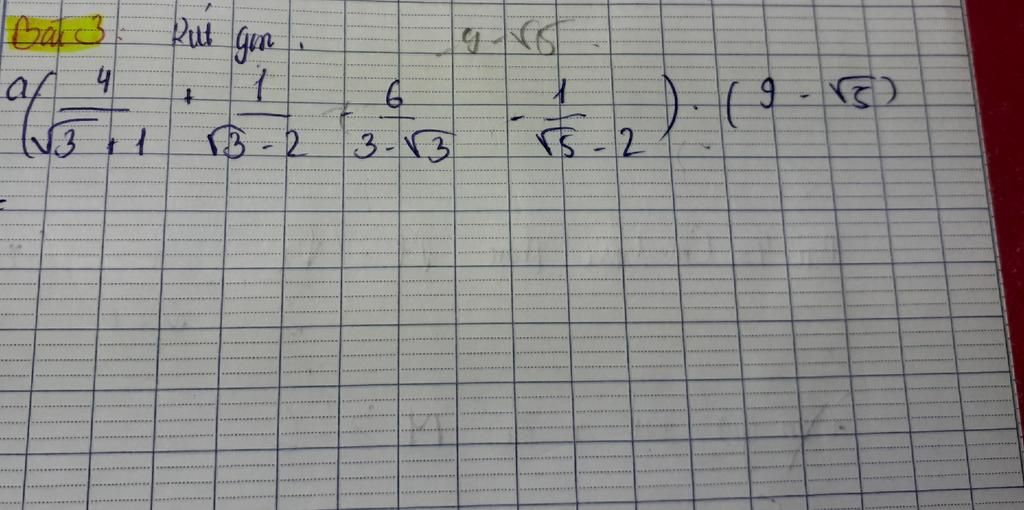 Bài 3: Rút gọn.
9 - √5
a) (4/(√3 + 1) + 1/(√3 - 2) + 6/(3 - √3) - 1/(√5 - 2)) . (9 - √5)
=